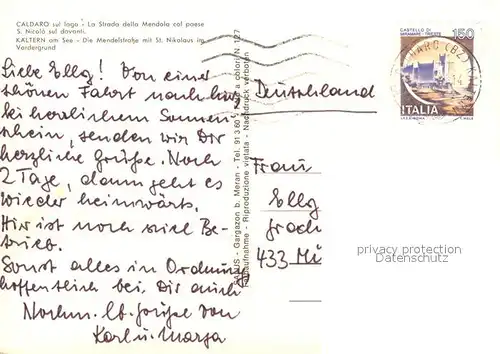 CALDARO sul lago - La Strada della Mendola col paese
S. Nicolò sul davanti.
KALTERN am See - Die Mendelstraße mit St. Nikolaus im
Vordergrund
Liebe Elly! Von einer
schönen Fahrt nach
herrlichem Sonnen
schein, senden wir Dir
herzliche Grüße. Noch
2 Tage, dann geht es
wieder heimwärts.
Hir ist noch viel Be-
trieb.
Sonst alles in Ordnung
hoffentlich bei Dir auch
Nochm. lb. Grüße von
Karl u. Marga
Gargazon b. Meran - Tel. 91 3 60
Riproduzione vietata - Nachdruck verboten
CASTELLO DI
MIRAMARE - TRIESTE
150
ITALIA
Deutschland
Frau
Elly
433 Mü
privacy protection